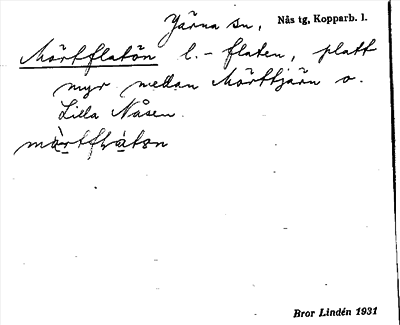 Järna sn, Nås tg, Kopparb. l.
Mörtflatön l. -flaten, platt
myr mellan Mörttjärn o.
Lilla Nåsen.
Bror Lindén 1931